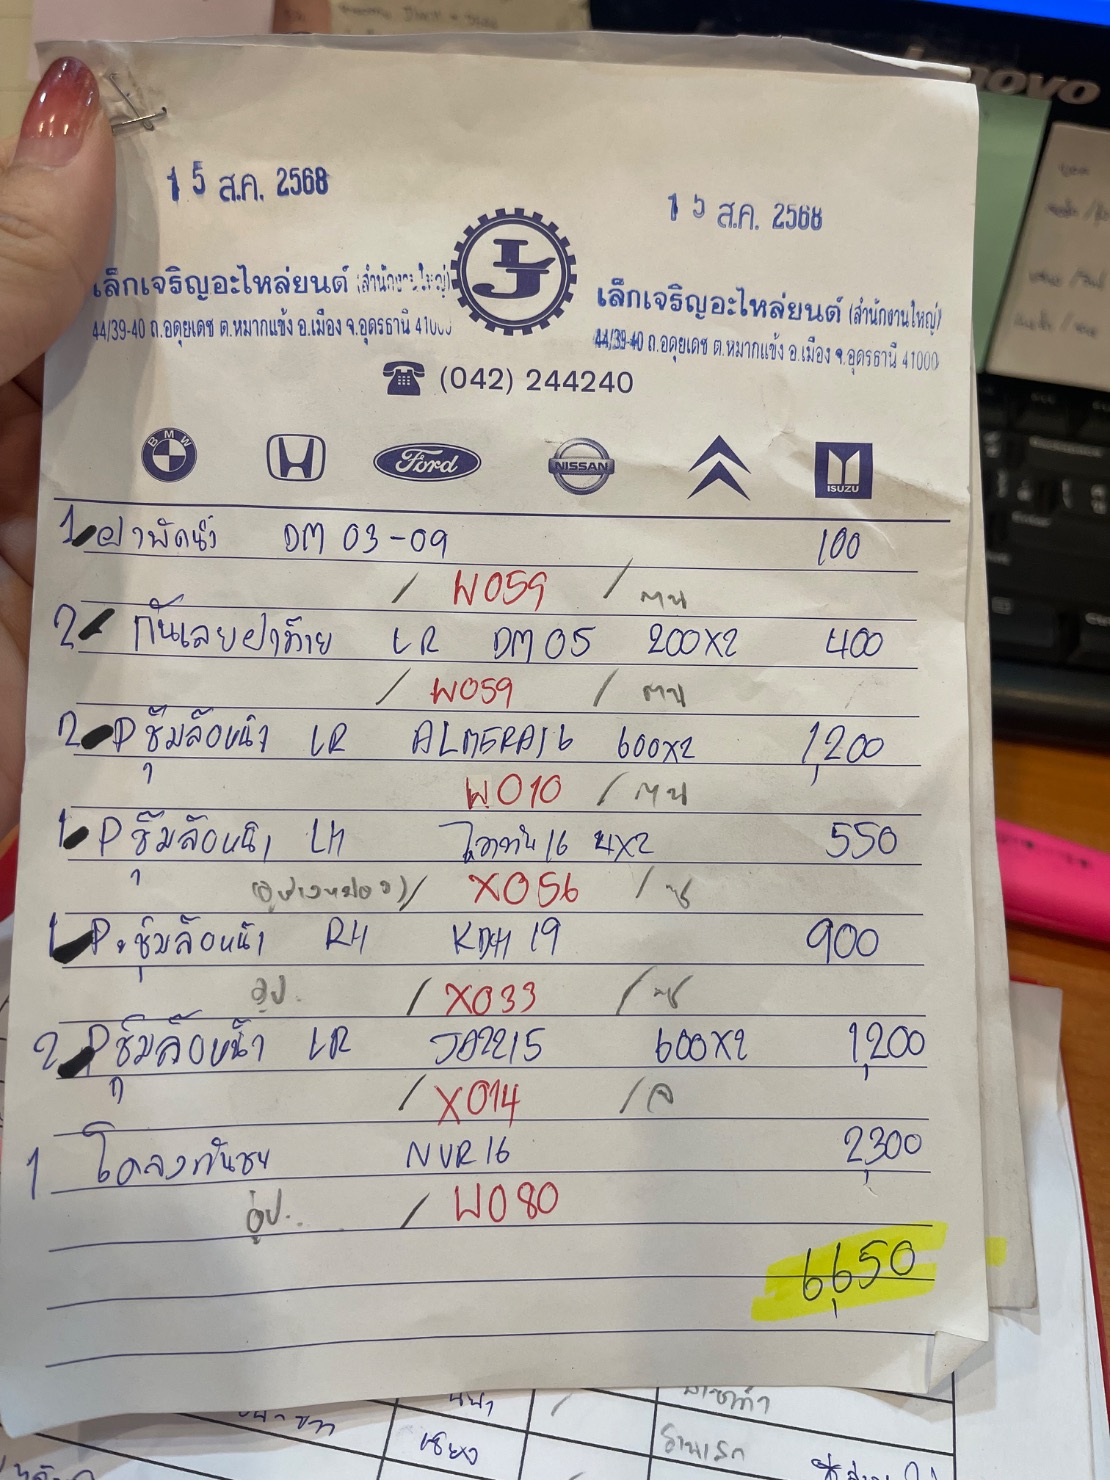 novo
15 ส.ค. 2568
15 ส.ค. 2568
LJ
เล็กเจริญอะไหล่ยนต์ (สำนักงานใหญ่)
44/39-40 ถ.อดุยเดช ต.หมากแข้ง อ.เมือง จ.อุดรธานี 41000
เล็กเจริญอะไหล่ยนต์ (สำนักงานใหญ่)
44/39-40 ถ.อดุยเดช ต.หมากแข้ง อ.เมือง จ.อุดรธานี 41000
(042) 244240
BMW H Ford NISSAN ISUZU
1 ฝาพัดน้ำ DM 03-09 100
/ W059 /
2 กันเลยฝาท้าย LR DM 05 200X2 400
/ W059 /
2 P ซุ้มล้อหน้า LR ALMERA16 600X2 1,200
W010 /
1 P ซุ้มล้อหน้า LH ไททัน16 4X2 550
/ X056 /
1 P. ซุ้มล้อหน้า RH KDH 19 900
อู่ป. / X033 /
2 P ซุ้มล้อหน้า LR 600X2 1,200
/ X014 / จ
1 โครงกันชน NVR16 2,300
อู่ป.. / W080
6,650